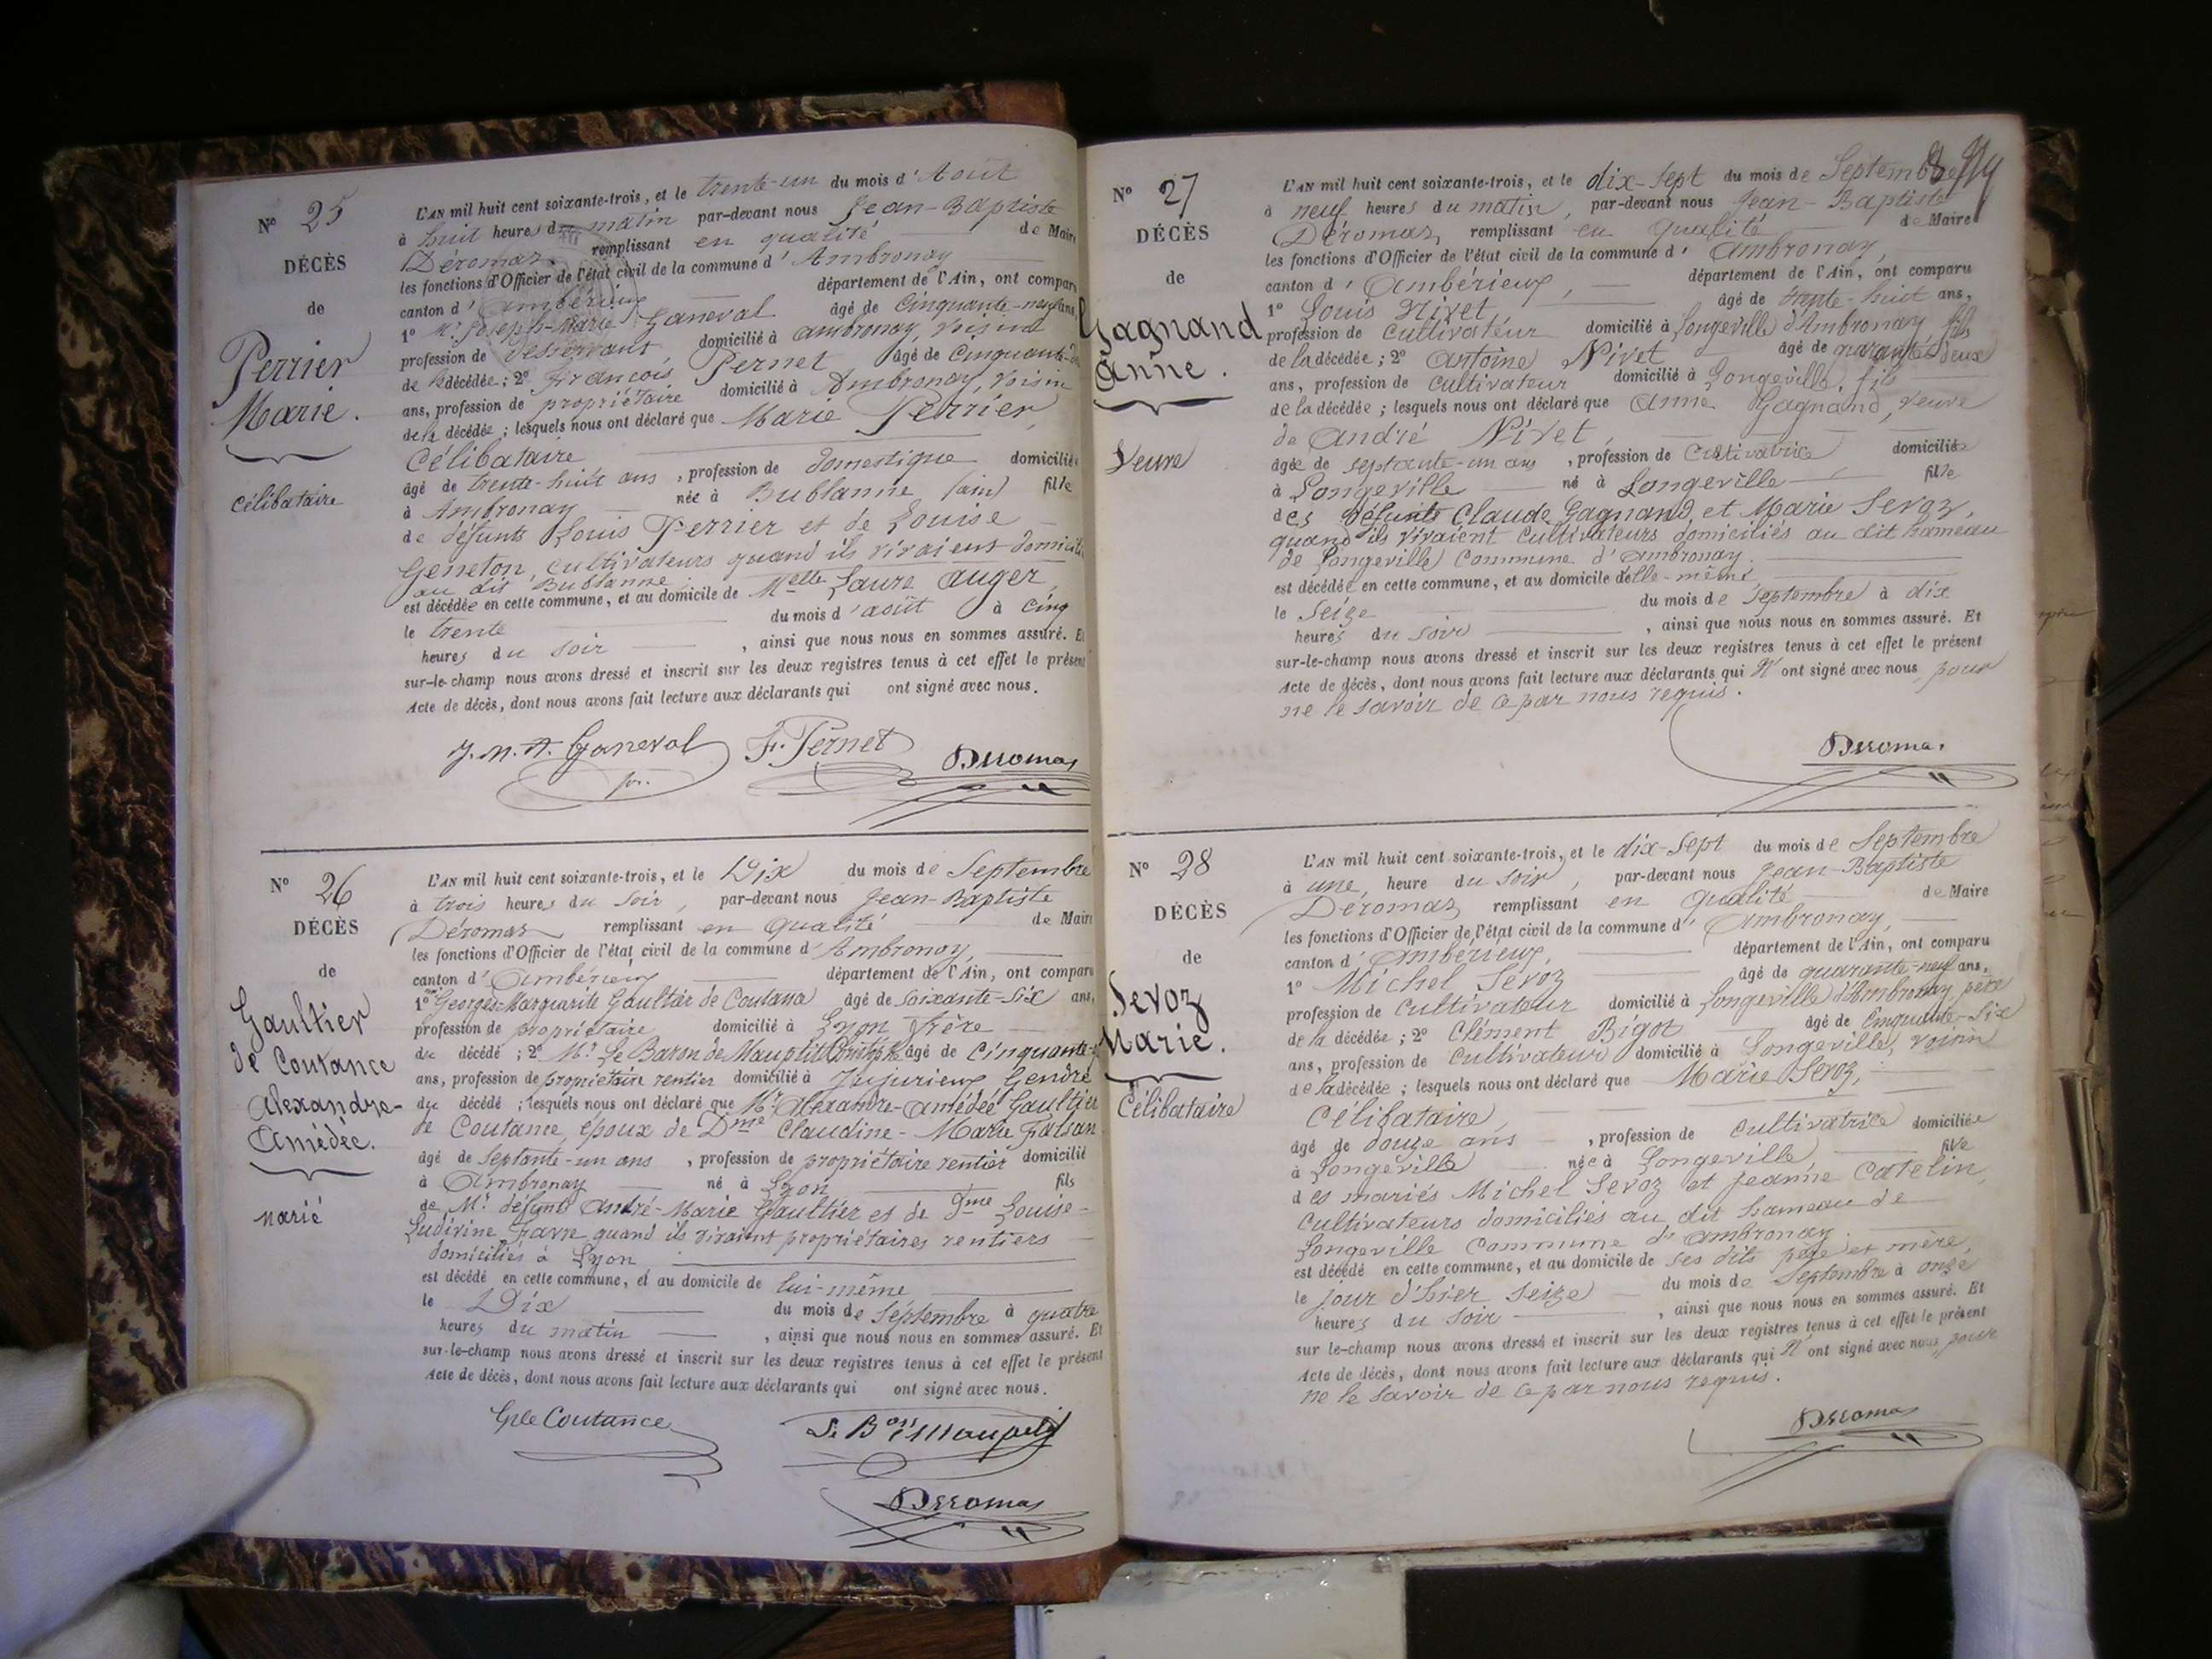 N° 25
DÉCÈS
de
Perrier
Marie.
célibataire
L'AN mil huit cent soixante-trois, et le trente-un du mois d'Août
à huit heures du matin par-devant nous Jean-Baptiste
Déromas remplissant en qualité de Maire
les fonctions d'Officier de l'état civil de la commune d'Ambronay
canton d'Ambérieux département de l'Ain, ont comparu
1° Mr Joseph-Marie Ganeval âgé de Cinquante-neuf ans,
profession de desservant, domicilié à Ambronay, voisin
de la décédée; 2° François Pernet âgé de Cinquante-
ans, profession de propriétaire domicilié à Ambronay, voisin
de la décédée; lesquels nous ont déclaré que Marie Perrier,
Célibataire
âgé de trente-huit ans, profession de domestique domiciliée
à Ambronay née à Bublanne (ain) fille
de défunts Louis Perrier et de Louise
Geneton, cultivateurs quand ils vivaient domiciliés
au dit Bublanne
est décédée en cette commune, et au domicile de Melle Laure Auger
le trente du mois d'août à cinq
heures du soir, ainsi que nous nous en sommes assuré. Et
sur-le-champ nous avons dressé et inscrit sur les deux registres tenus à cet effet le présent
Acte de décès, dont nous avons fait lecture aux déclarants qui ont signé avec nous.
J. M. A. Ganeval F. Pernet Deromas
N° 26
DÉCÈS
de
Gaultier
de Coutance
Alexandre-
Amédée.
marié
L'AN mil huit cent soixante-trois, et le Dix du mois de Septembre
à trois heures du soir, par-devant nous Jean-Baptiste
Déromas remplissant en qualité de Maire
les fonctions d'Officier de l'état civil de la commune d'Ambronay,
canton d'Ambérieux département de l'Ain, ont comparu
1° Georges-Marguerite Gaultier de Coutance âgé de soixante-six ans,
profession de propriétaire domicilié à Lyon frère
du décédé; 2° Mr Le Baron de Maupetit âgé de cinquante-
ans, profession de propriétaire rentier domicilié à Jujurieux Gendre
du décédé; lesquels nous ont déclaré que Mr Alexandre-Amédée Gaultier
de Coutance, époux de Dme Claudine-Marie Falsan
âgé de septante-un ans, profession de propriétaire rentier domicilié
à Ambronay né à Lyon fils
de Mr défunt André-Marie Gaultier et de Dme Louise-
Ludivine Favre quand ils vivaient propriétaires rentiers
domiciliés à Lyon
est décédé en cette commune, et au domicile de lui-même
le Dix du mois de Septembre à quatre
heures du matin, ainsi que nous nous en sommes assuré. Et
sur-le-champ nous avons dressé et inscrit sur les deux registres tenus à cet effet le présent
Acte de décès, dont nous avons fait lecture aux déclarants qui ont signé avec nous.
G de Coutance Le Bon Maupetit
Deromas
N° 27
DÉCÈS
de
Gagnand
Anne.
Veuve
L'AN mil huit cent soixante-trois, et le dix-sept du mois de Septembre
à neuf heures du matin, par-devant nous Jean-Baptiste
Déromas, remplissant en qualité de Maire
les fonctions d'Officier de l'état civil de la commune d'Ambronay,
canton d'Ambérieux, département de l'Ain, ont comparu
1° Louis Nivet âgé de trente-huit ans,
profession de cultivateur domicilié à Longeville d'Ambronay fils
de la décédée; 2° Antoine Nivet âgé de quarante-deux
ans, profession de cultivateur domicilié à Longeville, fils
de la décédée; lesquels nous ont déclaré que Anne Gagnand, veuve
de André Nivet,
âgée de septante-un ans, profession de Cultivatrice domiciliée
à Longeville né à Longeville fille
des défunts Claude Gagnand et Marie Sevoz,
quand ils vivaient cultivateurs domiciliés au dit hameau
de Longeville Commune d'Ambronay.
est décédée en cette commune, et au domicile d'elle-même
le seize du mois de Septembre à dix
heures du soir, ainsi que nous nous en sommes assuré. Et
sur-le-champ nous avons dressé et inscrit sur les deux registres tenus à cet effet le présent
Acte de décès, dont nous avons fait lecture aux déclarants qui N'ont signé avec nous pour
ne le savoir de ce par nous requis.
Deromas
N° 28
DÉCÈS
de
Sevoz
Marie.
Célibataire
L'AN mil huit cent soixante-trois, et le dix-sept du mois de Septembre
à une heure du soir, par-devant nous Jean-Baptiste
Déromas, remplissant en qualité de Maire
les fonctions d'Officier de l'état civil de la commune d'Ambronay,
canton d'Ambérieux, département de l'Ain, ont comparu
1° Michel Sevoz âgé de quarante-neuf ans,
profession de cultivateur domicilié à Longeville d'Ambronay père
de la décédée; 2° Clément Bigot âgé de Cinquante-six
ans, profession de cultivateur domicilié à Longeville, voisin
de la décédée; lesquels nous ont déclaré que Marie Sevoz,
Célibataire,
âgé de douze ans, profession de cultivatrice domiciliée
à Longeville née à Longeville fille
des mariés Michel Sevoz et Jeanne Catelin,
cultivateurs domiciliés au dit hameau de
Longeville Commune d'Ambronay.
est décédé en cette commune, et au domicile de ses dits père et mère,
le jour d'hier seize du mois de Septembre à onze
heures du soir, ainsi que nous nous en sommes assuré. Et
sur le-champ nous avons dressé et inscrit sur les deux registres tenus à cet effet le présent
Acte de décès, dont nous avons fait lecture aux déclarants qui N'ont signé avec nous, pour
ne le savoir de ce par nous requis.
Deromas